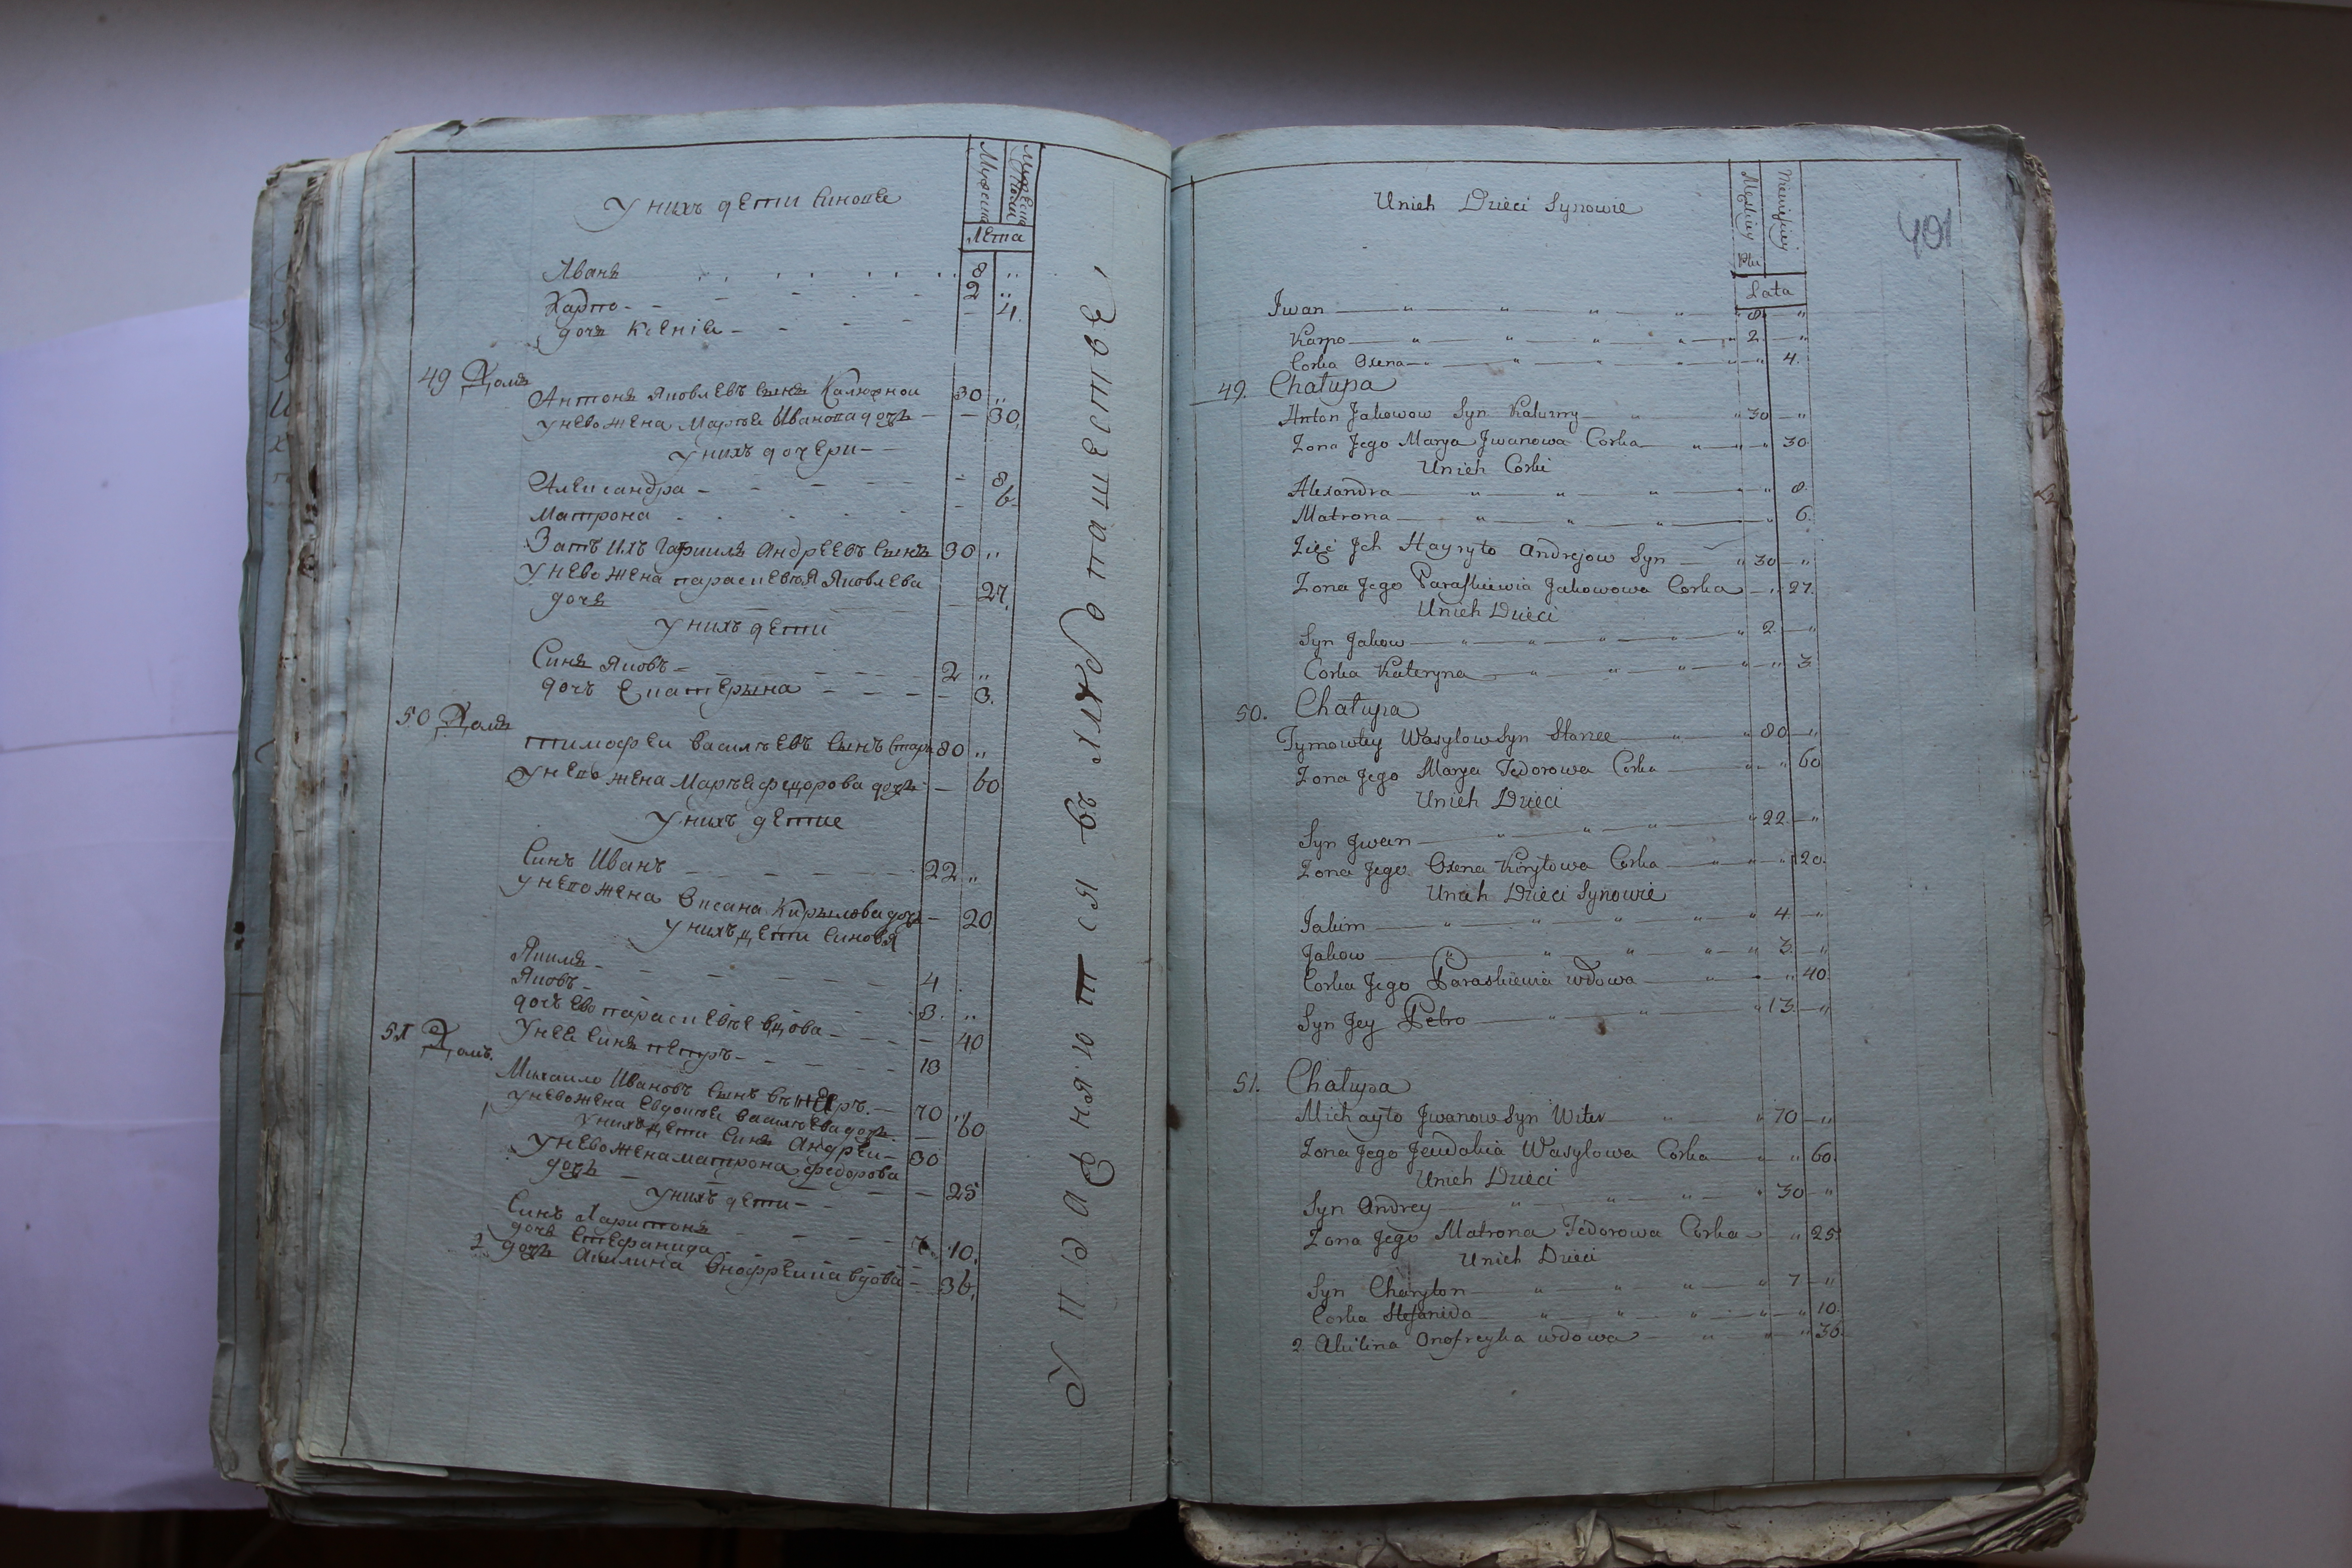 у нихъ дети синове
Мужеска
Лета
Иванъ 8 "
Карпо - 2 "
дочь Ксенiя - - 4.
49 Домъ
Антонъ Яковлевъ сынъ Калюжной 30 "
у нево жена Марья Иванова дочь - 30,
у нихъ дочери -
Александра - - 8
Матрона - 6
Зать ихъ Гаврила Андреевъ сынъ 30 "
у нево жена параскевья Яковлева
дочь - 27,
у нихъ дети
Синъ Яковъ - 2 "
дочь Екатерына - - 3.
50 Домъ
тимофеи василъевъ сынъ Стари 80 "
у нево жена Маръя федорова дочь - 60
у нихъ детие
Синъ Иванъ 22 "
у нево жена Оксана Кирылова дочь - 20
у нихъ дети синовя
Якимъ - 4
Яковъ - 3. "
дочь ево параскевье вдова - - 40
у нее синъ петръ - 13
51 Домъ.
Михаило Ивановъ сынъ - 70 "
у нево жена Евдокъе василъева дочь. - 60
у нихъ дети синъ Андреи - 30
у нево жена матрона федорова
дочь - - 25
у нихъ дети - -
Синъ Харитонъ 7.
дочь Стефанида 10.
2 дочь Акилина Онофреика вдова - 36,
въ лицо пашество,
Unich Dzieci Synowie
Męskiey
Płci
Niewieściey
Lata
401
Jwan " 8 "
Karpo " 2 "
Corka Oxena " 4.
49. Chałupa
Anton Jakowow Syn Kalużny " 30 "
Zona Jego Marya Jwanowa Corka " 30
Unich Corki
Alexandra " 8.
Matrona " 6.
Zięć Jch Hawryło Andrejow Syn " 30 "
Zona Jego Paraskiewia Jakowowa Corka " 27.
Unich Dzieci
Syn Jakow " 2. "
Corka Kateryna " 3
50. Chałupa
Tymowtey Wasylow Syn Staree " 80 "
Zona Jego Marya Fedorowa Corka " 60
Unich Dzieci
Syn Jwan " 22. "
Zona Jego Oxena Kiryłowa Corka " 20.
Unich Dzieci Synowie
Jakim " 4. "
Jakow " 3. "
Corka Jego Paraskiewia wdowa " 40
Syn Jey Petro " 13. "
51. Chałupa
Michayło Jwanow Syn Witer " 70 "
Zona Jego Jewdokia Wasylowa Corka " 60.
Unich Dzieci
Syn Andrey " 30 "
Zona Jego Matrona Fedorowa Corka " 25
Unich Dzieci
Syn Charyton " 7 "
Corka Stefanida " 10.
2. Akilina Onofreyka wdowa " 36.